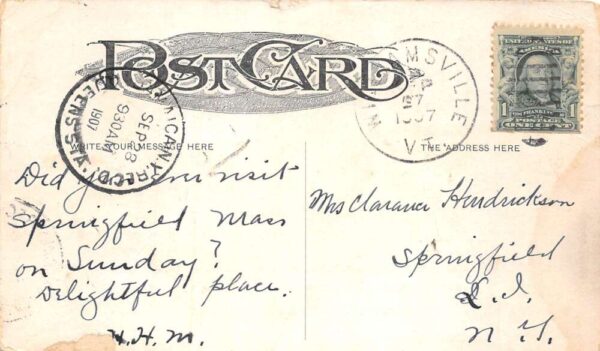 POST CARD
WRITE YOUR MESSAGE HERE
THE ADDRESS HERE
MSVILLE
1907
VT.
REC'D.
SEP 28
930 AM
1907
QUEENS STA.
UNITED STATES OF AMERICA
FRANKLIN
POSTAGE
1 ONE CENT 1
Did you ever visit
Springfield Mass
on Sunday?
Delightful place.
H.H.M.
Mrs Clarance Hendrickson
Springfield
L.I.
N.Y.